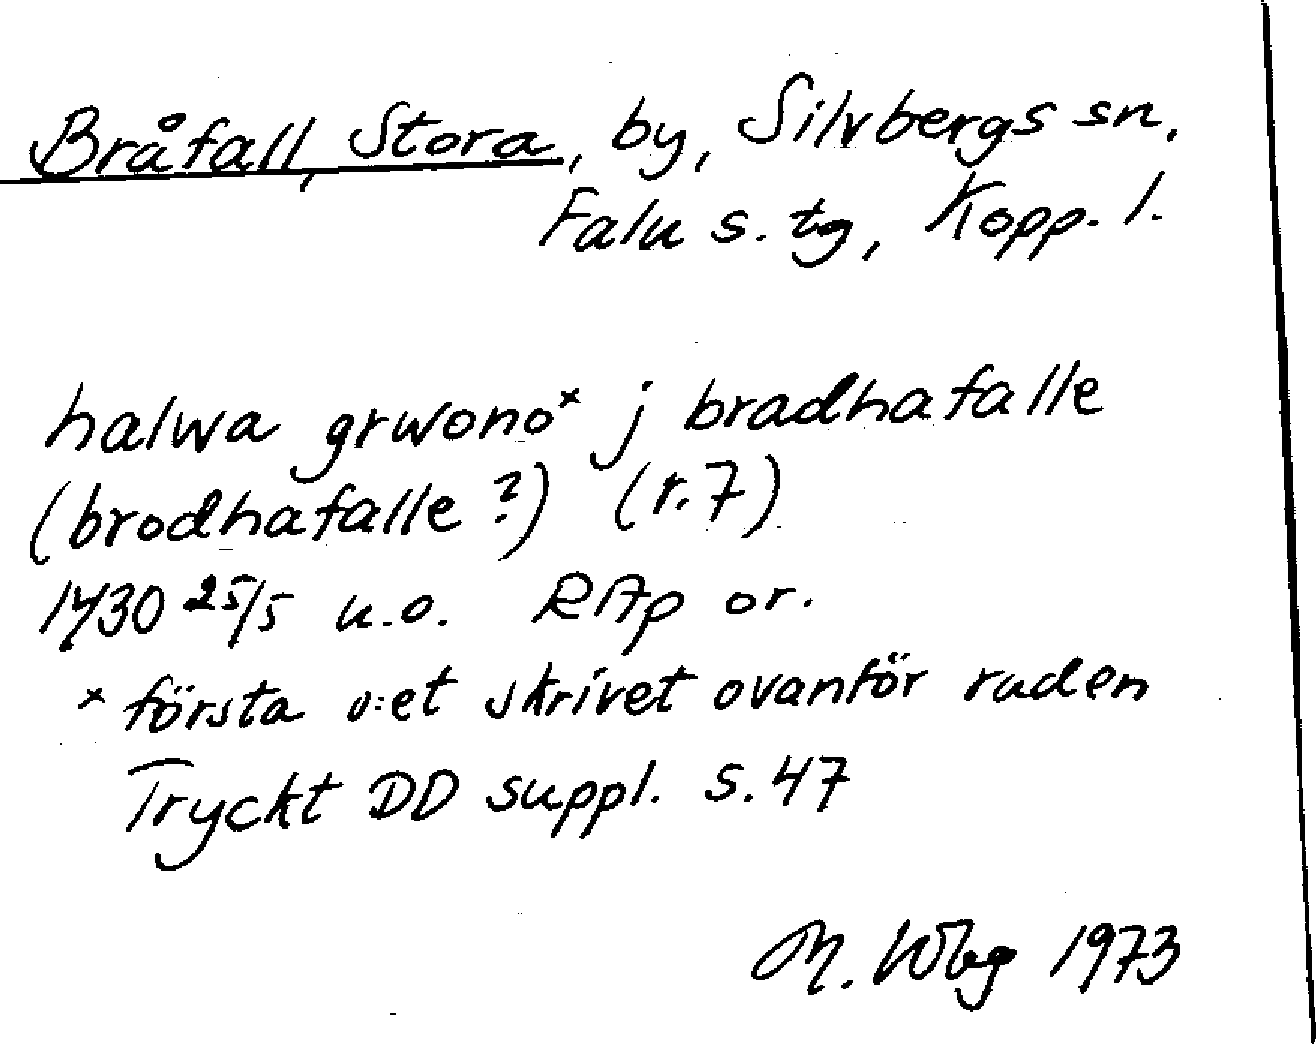 Bråfall, Stora, by, Silvbergs sn,
Falu s. tg, Kopp. l.
halwa grwono* j bradhafalle
(brodhafalle?) (r. 7)
1430 25/5 u.o. RAp or.
* första o:et skrivet ovanför raden
Tryckt DD suppl. s. 47
M. Wbg 1973